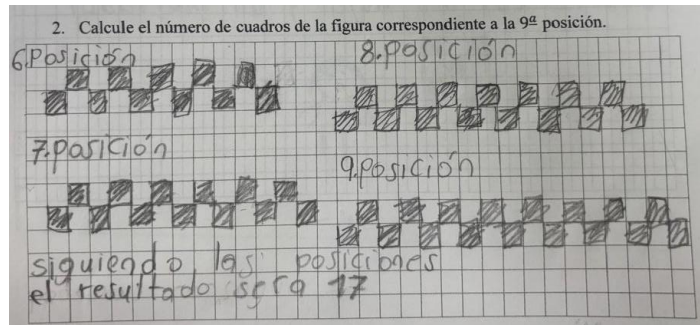 2. Calcule el número de cuadros de la figura correspondiente a la 9ª posición.
6.Posición
8.posición
7.posición
9.posición
siguiendo las posiciones
el resultado sera 17